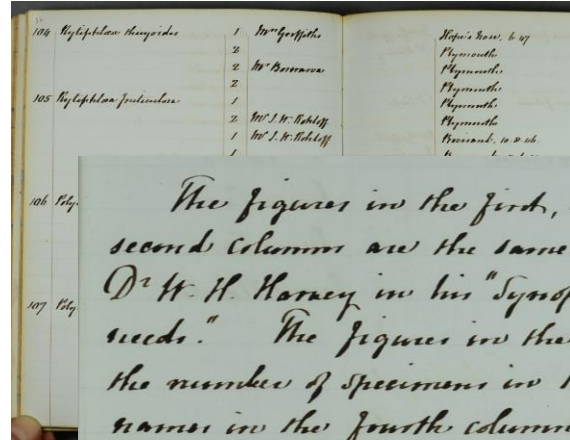 104 Rytiphlæa thuyoides 1 Mrs Griffiths Hope's Nose, 6.47
2 Plymouth
2 Mr Boswarva Plymouth
2 Plymouth
105 Rytiphlæa fruticulosa 1 Plymouth
2 Mr J. W. Rohloff Plymouth
1 Mr J. W. Rohloff Bovisand, 10.8.46.
106 Poly-
107 Poly-
The figures in the first,
second columns are the same
Dr W. H. Harvey in his "Synop
weeds." The figures in the
the number of specimens in
names in the fourth column